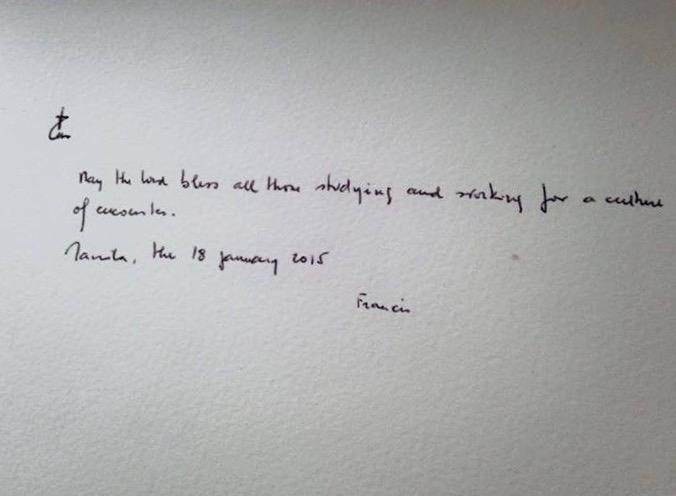 May the Lord bless all those studying and working for a culture
of encounter.
Manila, the 18 january 2015
Francis